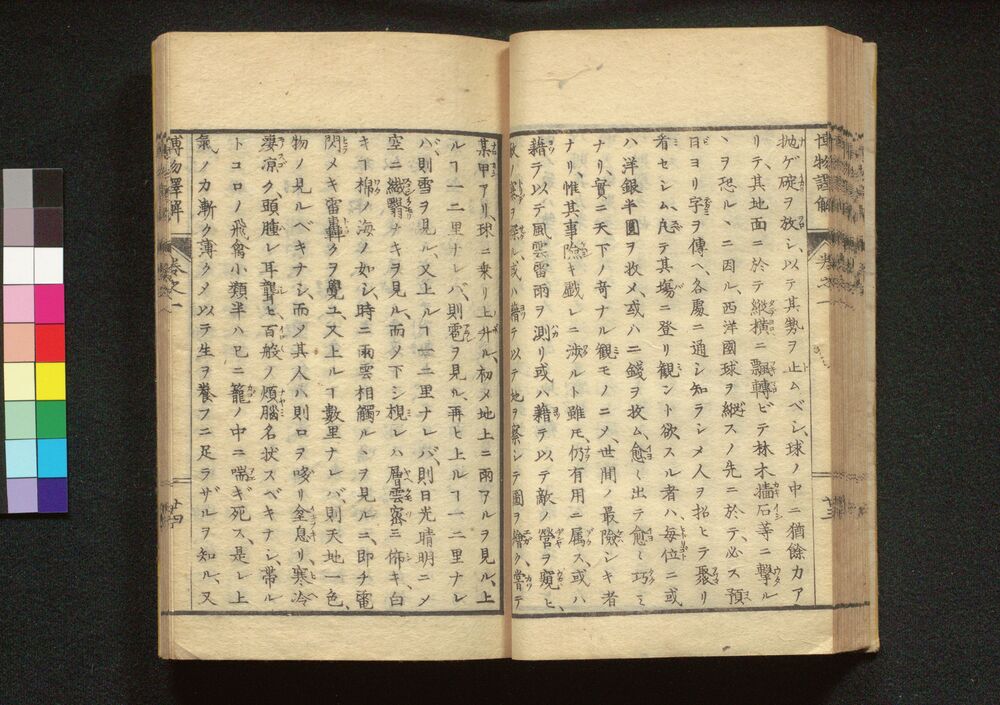 博物譯解 卷之一 廿三
抛ゲ碇ヲ放シ、以テ其勢ヲ止ムベシ、球ノ中ニ猶餘カア
リテ、其地面ニ於テ縱横ニ飄轉ビテ林木墻石等ニ擊ル
ヽヲ恐ル、ニ因ル、西洋國球ヲ縱スノ先ニ於テ、必ス預
日ヨリ字ヲ傳ヘ、各處ニ通シ知ラシメ人ヲ招ヒテ聚リ
者セシム、凡テ其塲ニ登リ観ント欲スル者ハ、毎位ニ或
ハ洋銀半圓ヲ收メ、或ハ二錢ヲ收ム、愈〻出テ愈〻巧ミ
ナリ、實ニ天下ノ奇ナル觀モノニメ、世間ノ最險シキ者
ナリ、惟其事險キ戯レニ渉ルト雖モ、仍有用ニ属ス、或ハ
藉テ以テ風雲雷雨ヲ測リ或ハ藉テ以テ敵ノ營ヲ窺ヒ、
敵ノ寨ヲ探ル、或ハ藉テ以テ地ヲ察シテ圖ヲ繪ク、嘗テ
某甲アリ、球ニ乗リ上升ル、初メ地上ニ雨アルヲ見ル、上
ルヿ一二里ナレバ、則雹ヲ見ル、再ヒ上ルヿ一二里ナレ
ハ、則雪ヲ見ル、又上ルヿ一二里ナレバ、則日光晴明ニメ
空ニ纎翳ナキヲ見ル、而ノ下シ梘レハ層雲密ニ佈キ、白
キヿ棉ノ海ノ如シ、時ニ兩雲相觸ルヽヲ見ルニ、即チ電
閃メキ雷轟クヲ覺ユ、又上ルヿ數里ナレバ、則天地一色、
物ノ見ルベキナシ、而メ其人ハ則口ヲ唆リ全息リ、寒冷
凄凉ク、頭腫レ耳聾ヒ百般ノ煩腦名状スベキナシ、帯ル
トコロノ飛禽小類半ハ已ニ籠ノ中ニ喘ギ死ス、是レ上
氣ノカ漸ク薄クメ、以テ生ヲ養フニ足ラザルヲ知ル、又
博物譯解 卷之一 廿四